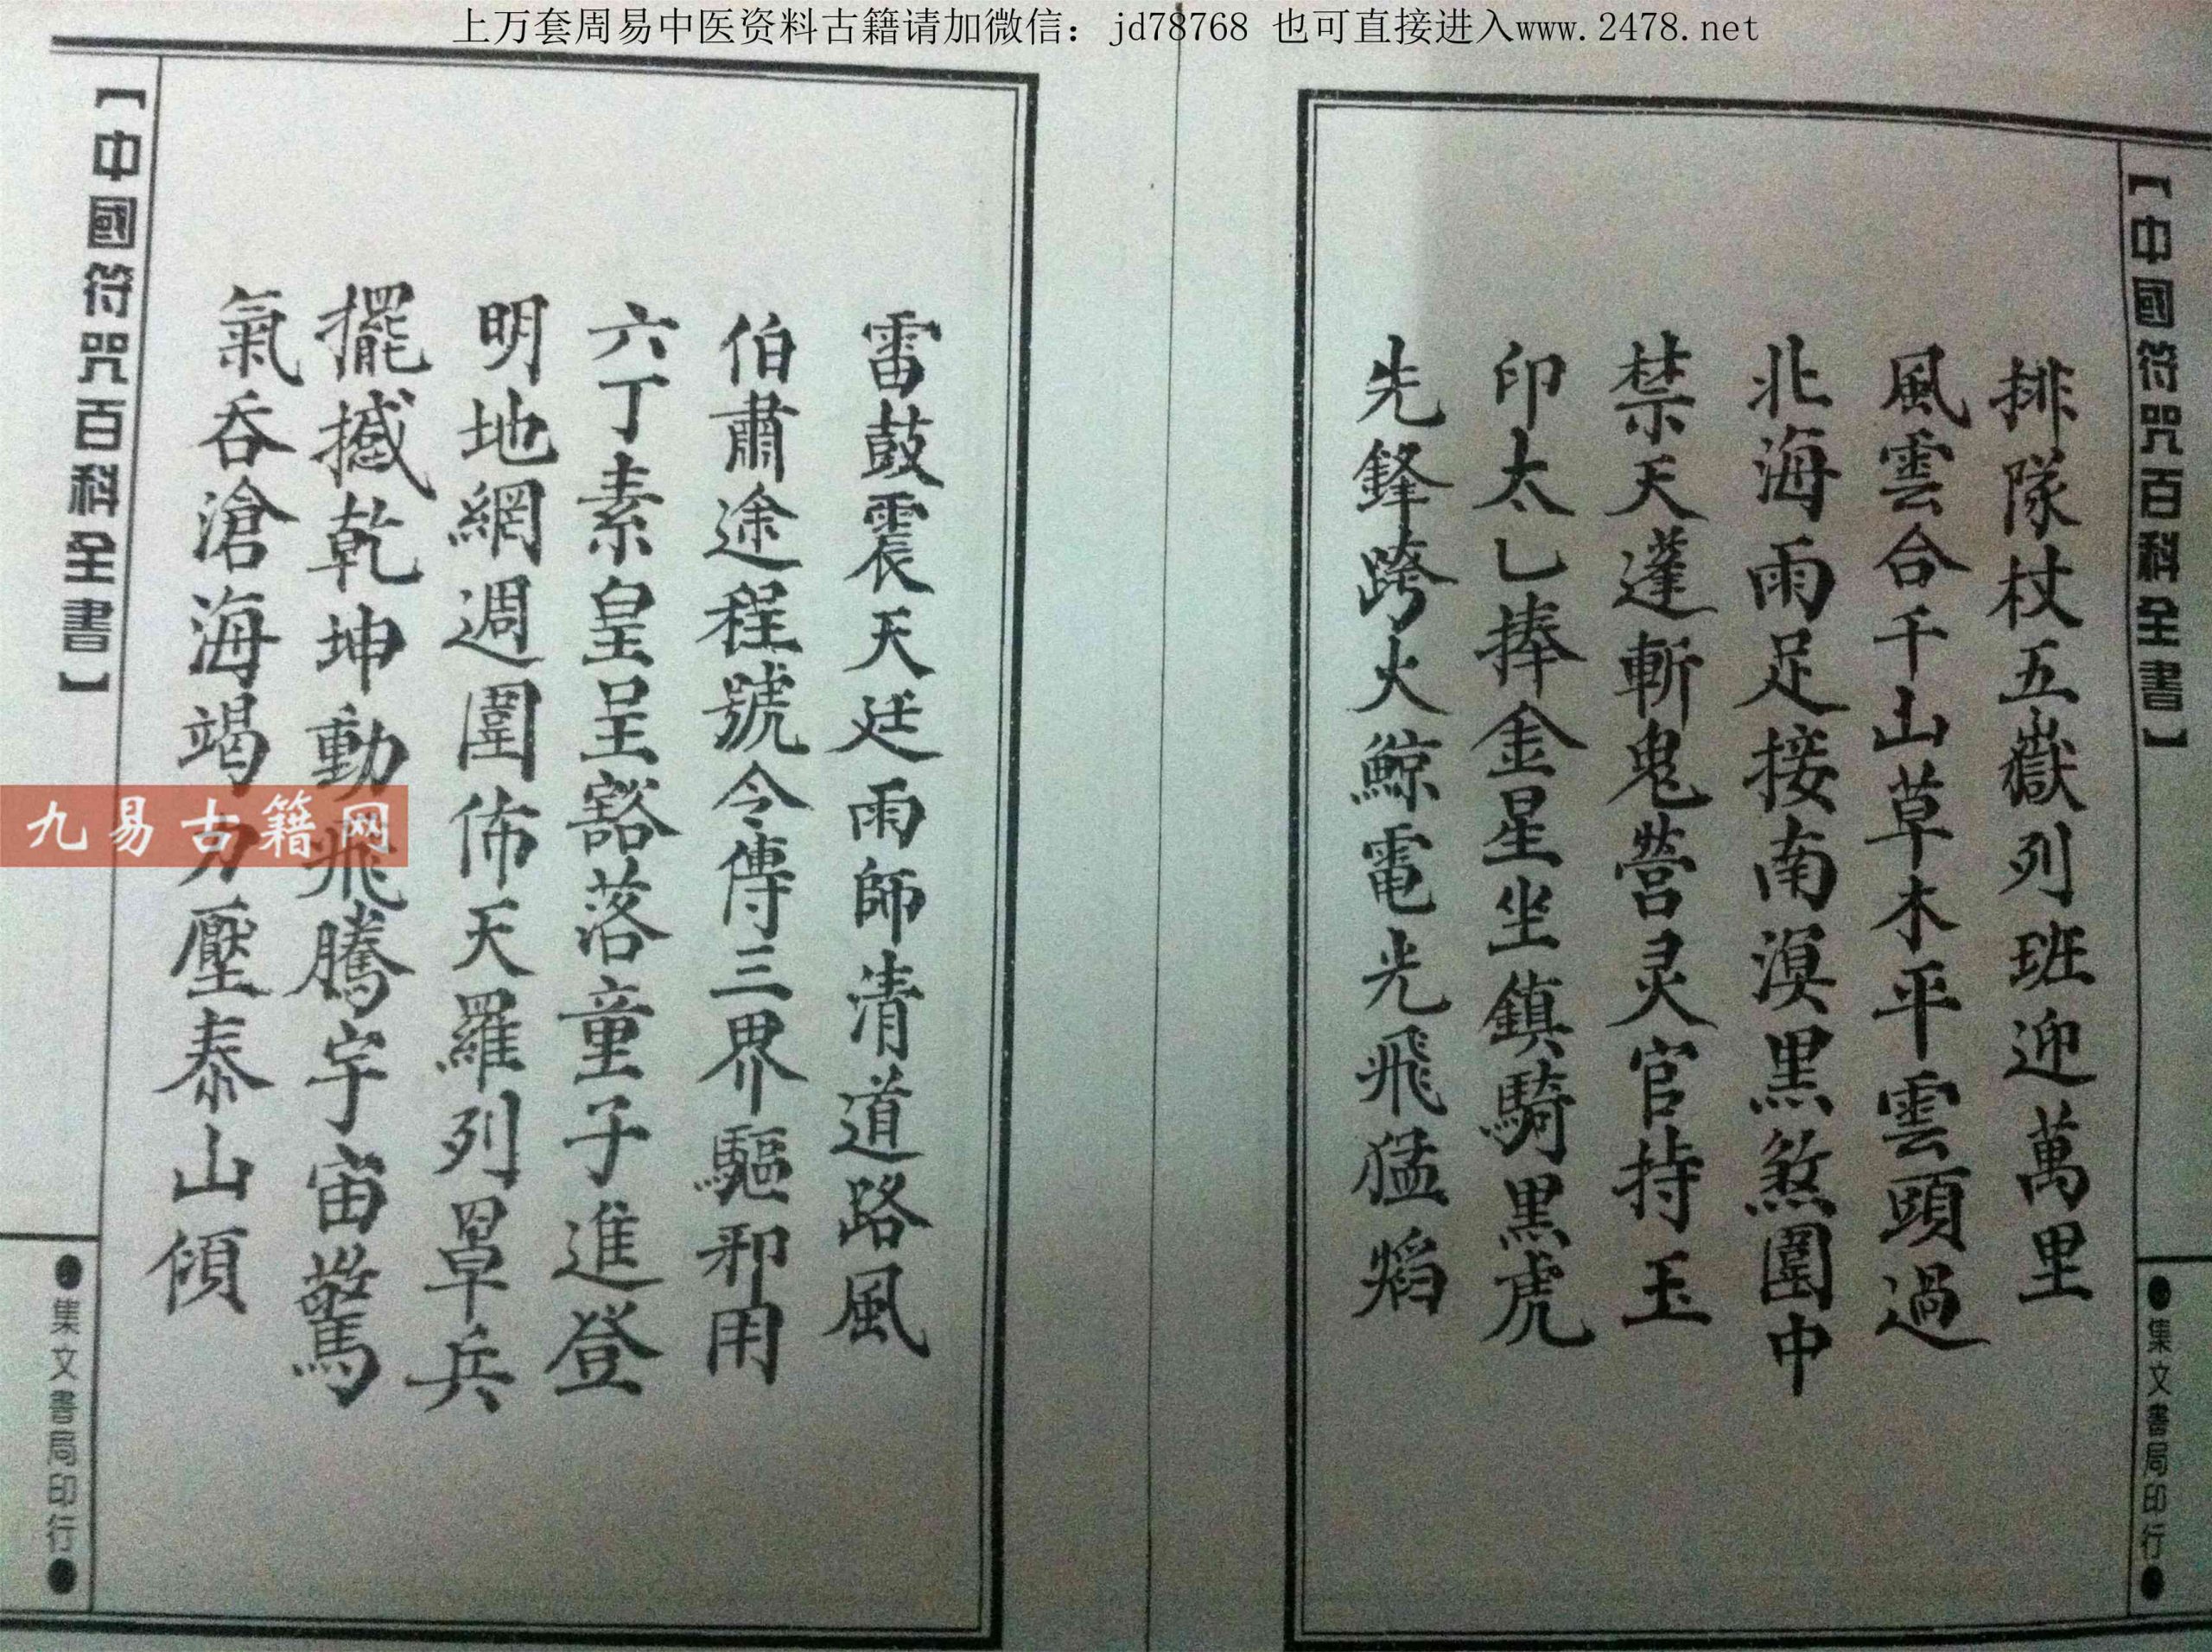 上万套周易中医资料古籍请加微信：jd78768 也可直接进入www.2478.net
【中國符咒百科全書】
●集文書局印行●
排隊杖五嶽列班迎萬里
風雲合千山草木平雲頭過
北海雨足接南溟黑煞圍中
禁天蓬斬鬼營灵官持玉
印太乙捧金星坐鎮騎黑虎
先鋒跨火鯨電光飛猛焰
雷鼓震天廷雨師清道路風
伯肅途程號令傳三界驅邪用
六丁素皇呈豁落童子進登
明地網週圍佈天羅列罩兵
擺撼乾坤動飛騰宇宙驚
氣吞滄海竭力壓泰山傾
【中國符咒百科全書】
●集文書局印行●
九易古籍网